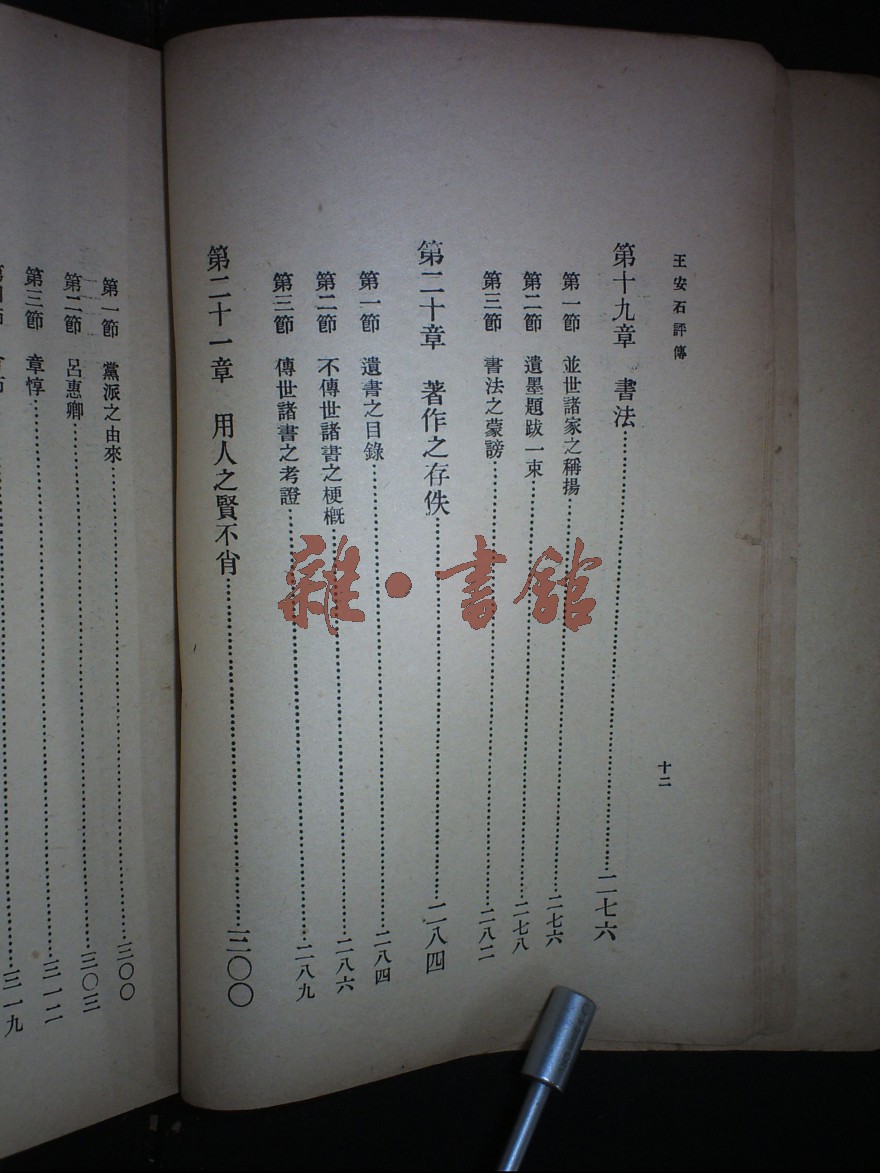 王安石評傳
十二
第十九章 書法……二七六
第一節 並世諸家之稱揚……二七六
第二節 遺墨題跋一束……二七八
第三節 書法之蒙謗……二八二
第二十章 著作之存佚……二八四
第一節 遺書之目錄……二八四
第二節 不傳世諸書之梗概……二八六
第三節 傳世諸書之考證……二八九
第二十一章 用人之賢不肖……三〇〇
第一節 黨派之由來……三〇〇
第二節 呂惠卿……三〇三
第三節 章惇……三一二
三一九
雜·書館